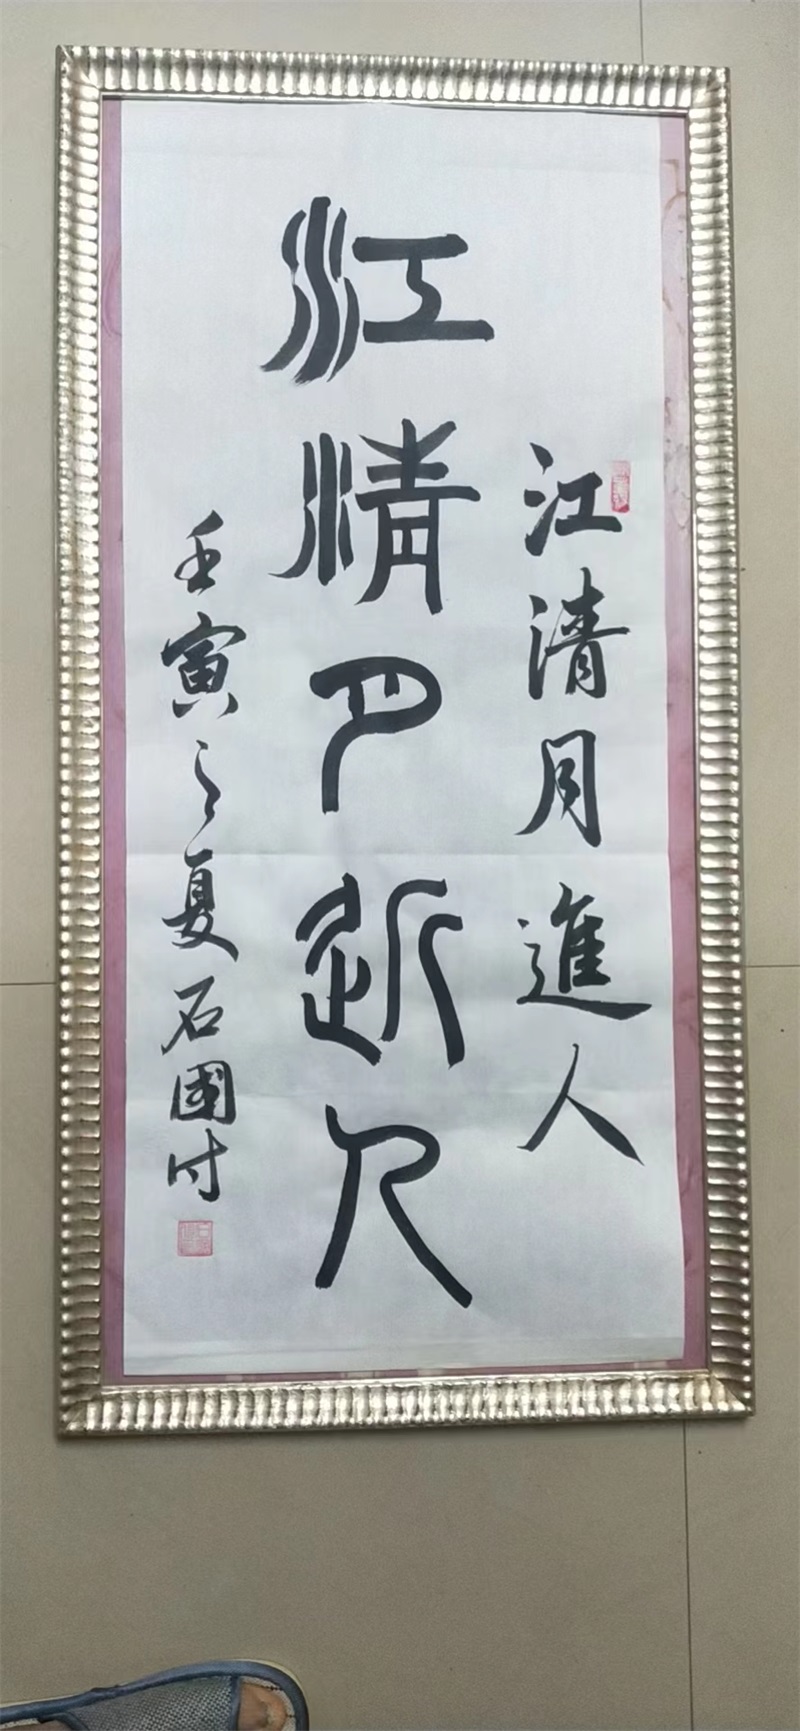 江清月進人
江清月近人
壬寅之夏石國